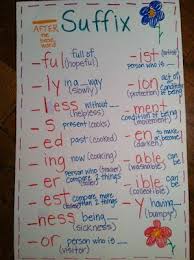 Suffix
AFTER
the base
word
-ful full of (hopeful)
-ly in a way (slowly)
-less without (helpless)
-s present (cooks)
-ed past (cooked)
-ing now (cooking)
-er person who (teacher)
compare 2 things
-est compare more than 2 things
-ness being (sickness)
-or person who is (visitor)
-ist (artist)
person who is
-ion act of
condition of
-ment
condition of being
-en to make
-able can be
-ible can be
-y having
(bumpy)